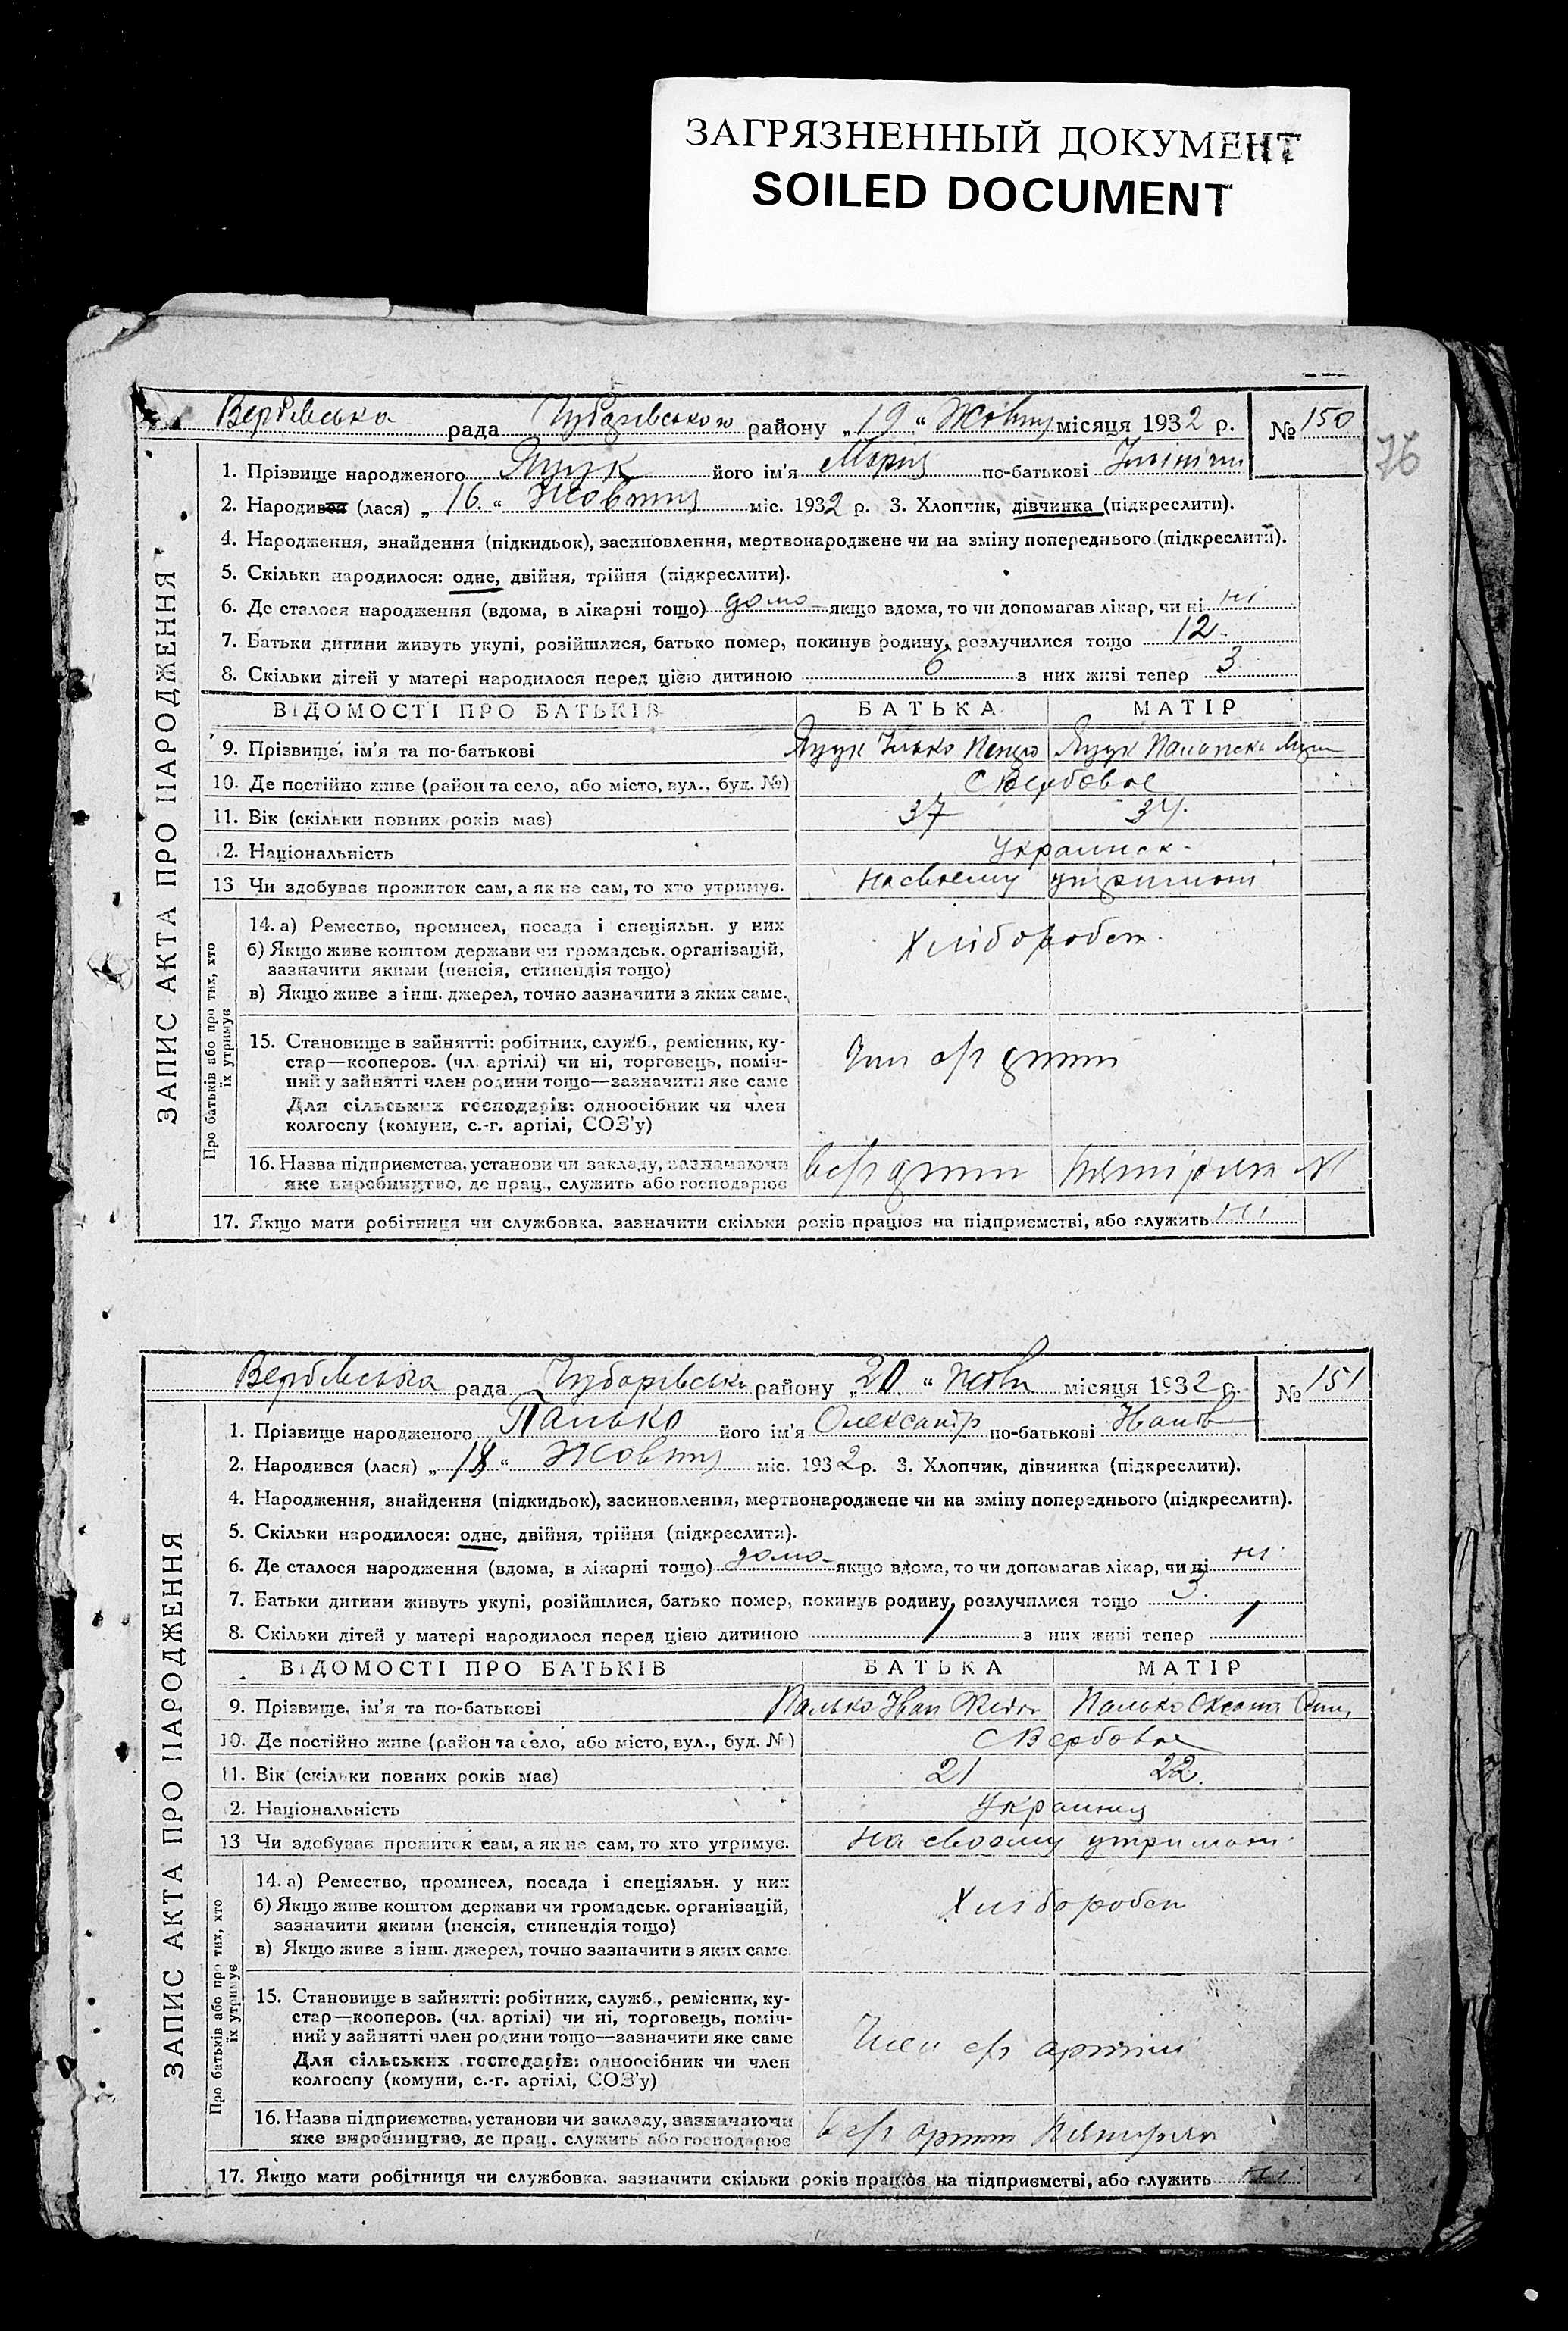 ЗАГРЯЗНЕННЫЙ ДОКУМЕНТ
SOILED DOCUMENT
76
Вербівська рада Чубарівського району „19“ Жовтня місяця 1932 р. № 150
ЗАПИС АКТА ПРО НАРОДЖЕННЯ
1. Прізвище народженого Яцук його ім'я Мария по-батькові
2. Народився (лася) „16“ Жовтня міс. 1932 р. 3. Хлопчик, дівчинка (підкреслити).
4. Народження, знайдення (підкидьок), засиновлення, мертвонароджене чи на зміну попереднього (підкреслити).
5. Скільки народилося: одне, двійня, трійня (підкреслити).
6. Де сталося народження (вдома, в лікарні тощо) дома якщо вдома, то чи допомагав лікар, чи ні ні
7. Батьки дитини живуть укупі, розійшлися, батько помер, покинув родину, розлучилися тощо 12
8. Скільки дітей у матері народилося перед цією дитиною 6 з них живі тепер 3
ВІДОМОСТІ ПРО БАТЬКІВ БАТЬКА МАТІР
9. Прізвище, ім'я та по-батькові Яцук Яцук
10. Де постійно живе (район та село, або місто, вул., буд. №) С Вербовое
11. Вік (скільки повних років має) 37 34
12. Національність
13 Чи здобуває прожиток сам, а як не сам, то хто утримує. На своему утримані
Про батьків або про тих, хто їх утримує
14. а) Ремество, промисел, посада і спеціяльн. у них
б) Якщо живе коштом держави чи громадськ. організацій,
зазначити якими (пенсія, стипендія тощо)
в) Якщо живе з інш. джерел, точно зазначити з яких саме.
Хлібороб
15. Становище в зайнятті: робітник, служб., ремісник, ку-
стар—кооперов. (чл. артілі) чи ні, торговець, поміч-
ний у зайнятті член родини тощо—зазначити яке саме
Для сільських господарів: одноосібник чи член
колгоспу (комуни, с.-г. артілі, СОЗ'у)
16. Назва підприємства, установи чи закладу, зазначаючи
яке виробництво, де прац., служить або господарює
17. Якщо мати робітниця чи службовка, зазначити скільки років працює на підприємстві, або служить ні
Вербівська рада Чубарівська району „20“ Жовт місяця 1932 р. № 151
ЗАПИС АКТА ПРО НАРОДЖЕННЯ
1. Прізвище народженого Палько його ім'я Олександр по-батькові Іванов
2. Народився (лася) „18“ Жовтня міс. 1932 р. 3. Хлопчик, дівчинка (підкреслити).
4. Народження, знайдення (підкидьок), засиновлення, мертвонароджене чи на зміну попереднього (підкреслити).
5. Скільки народилося: одне, двійня, трійня (підкреслити).
6. Де сталося народження (вдома, в лікарні тощо) дома якщо вдома, то чи допомагав лікар, чи ні ні
7. Батьки дитини живуть укупі, розійшлися, батько помер, покинув родину, розлучилися тощо 3
8. Скільки дітей у матері народилося перед цією дитиною 1 з них живі тепер 1
ВІДОМОСТІ ПРО БАТЬКІВ БАТЬКА МАТІР
9. Прізвище, ім'я та по-батькові Палько Іван Палько Оксана
10. Де постійно живе (район та село, або місто, вул., буд. №) С Вербовое
11. Вік (скільки повних років має) 21 22
12. Національність
13 Чи здобуває прожиток сам, а як не сам, то хто утримує. На своему утримані
Про батьків або про тих, хто їх утримує
14. а) Ремество, промисел, посада і спеціяльн. у них
б) Якщо живе коштом держави чи громадськ. організацій,
зазначити якими (пенсія, стипендія тощо)
в) Якщо живе з інш. джерел, точно зазначити з яких саме.
Хлібороб
15. Становище в зайнятті: робітник, служб., ремісник, ку-
стар—кооперов. (чл. артілі) чи ні, торговець, поміч-
ний у зайнятті член родини тощо—зазначити яке саме
Для сільських господарів: одноосібник чи член
колгоспу (комуни, с.-г. артілі, СОЗ'у)
Член с/г артілі
16. Назва підприємства, установи чи закладу, зазначаючи
яке виробництво, де прац., служить або господарює
17. Якщо мати робітниця чи службовка, зазначити скільки років працює на підприємстві, або служить ні